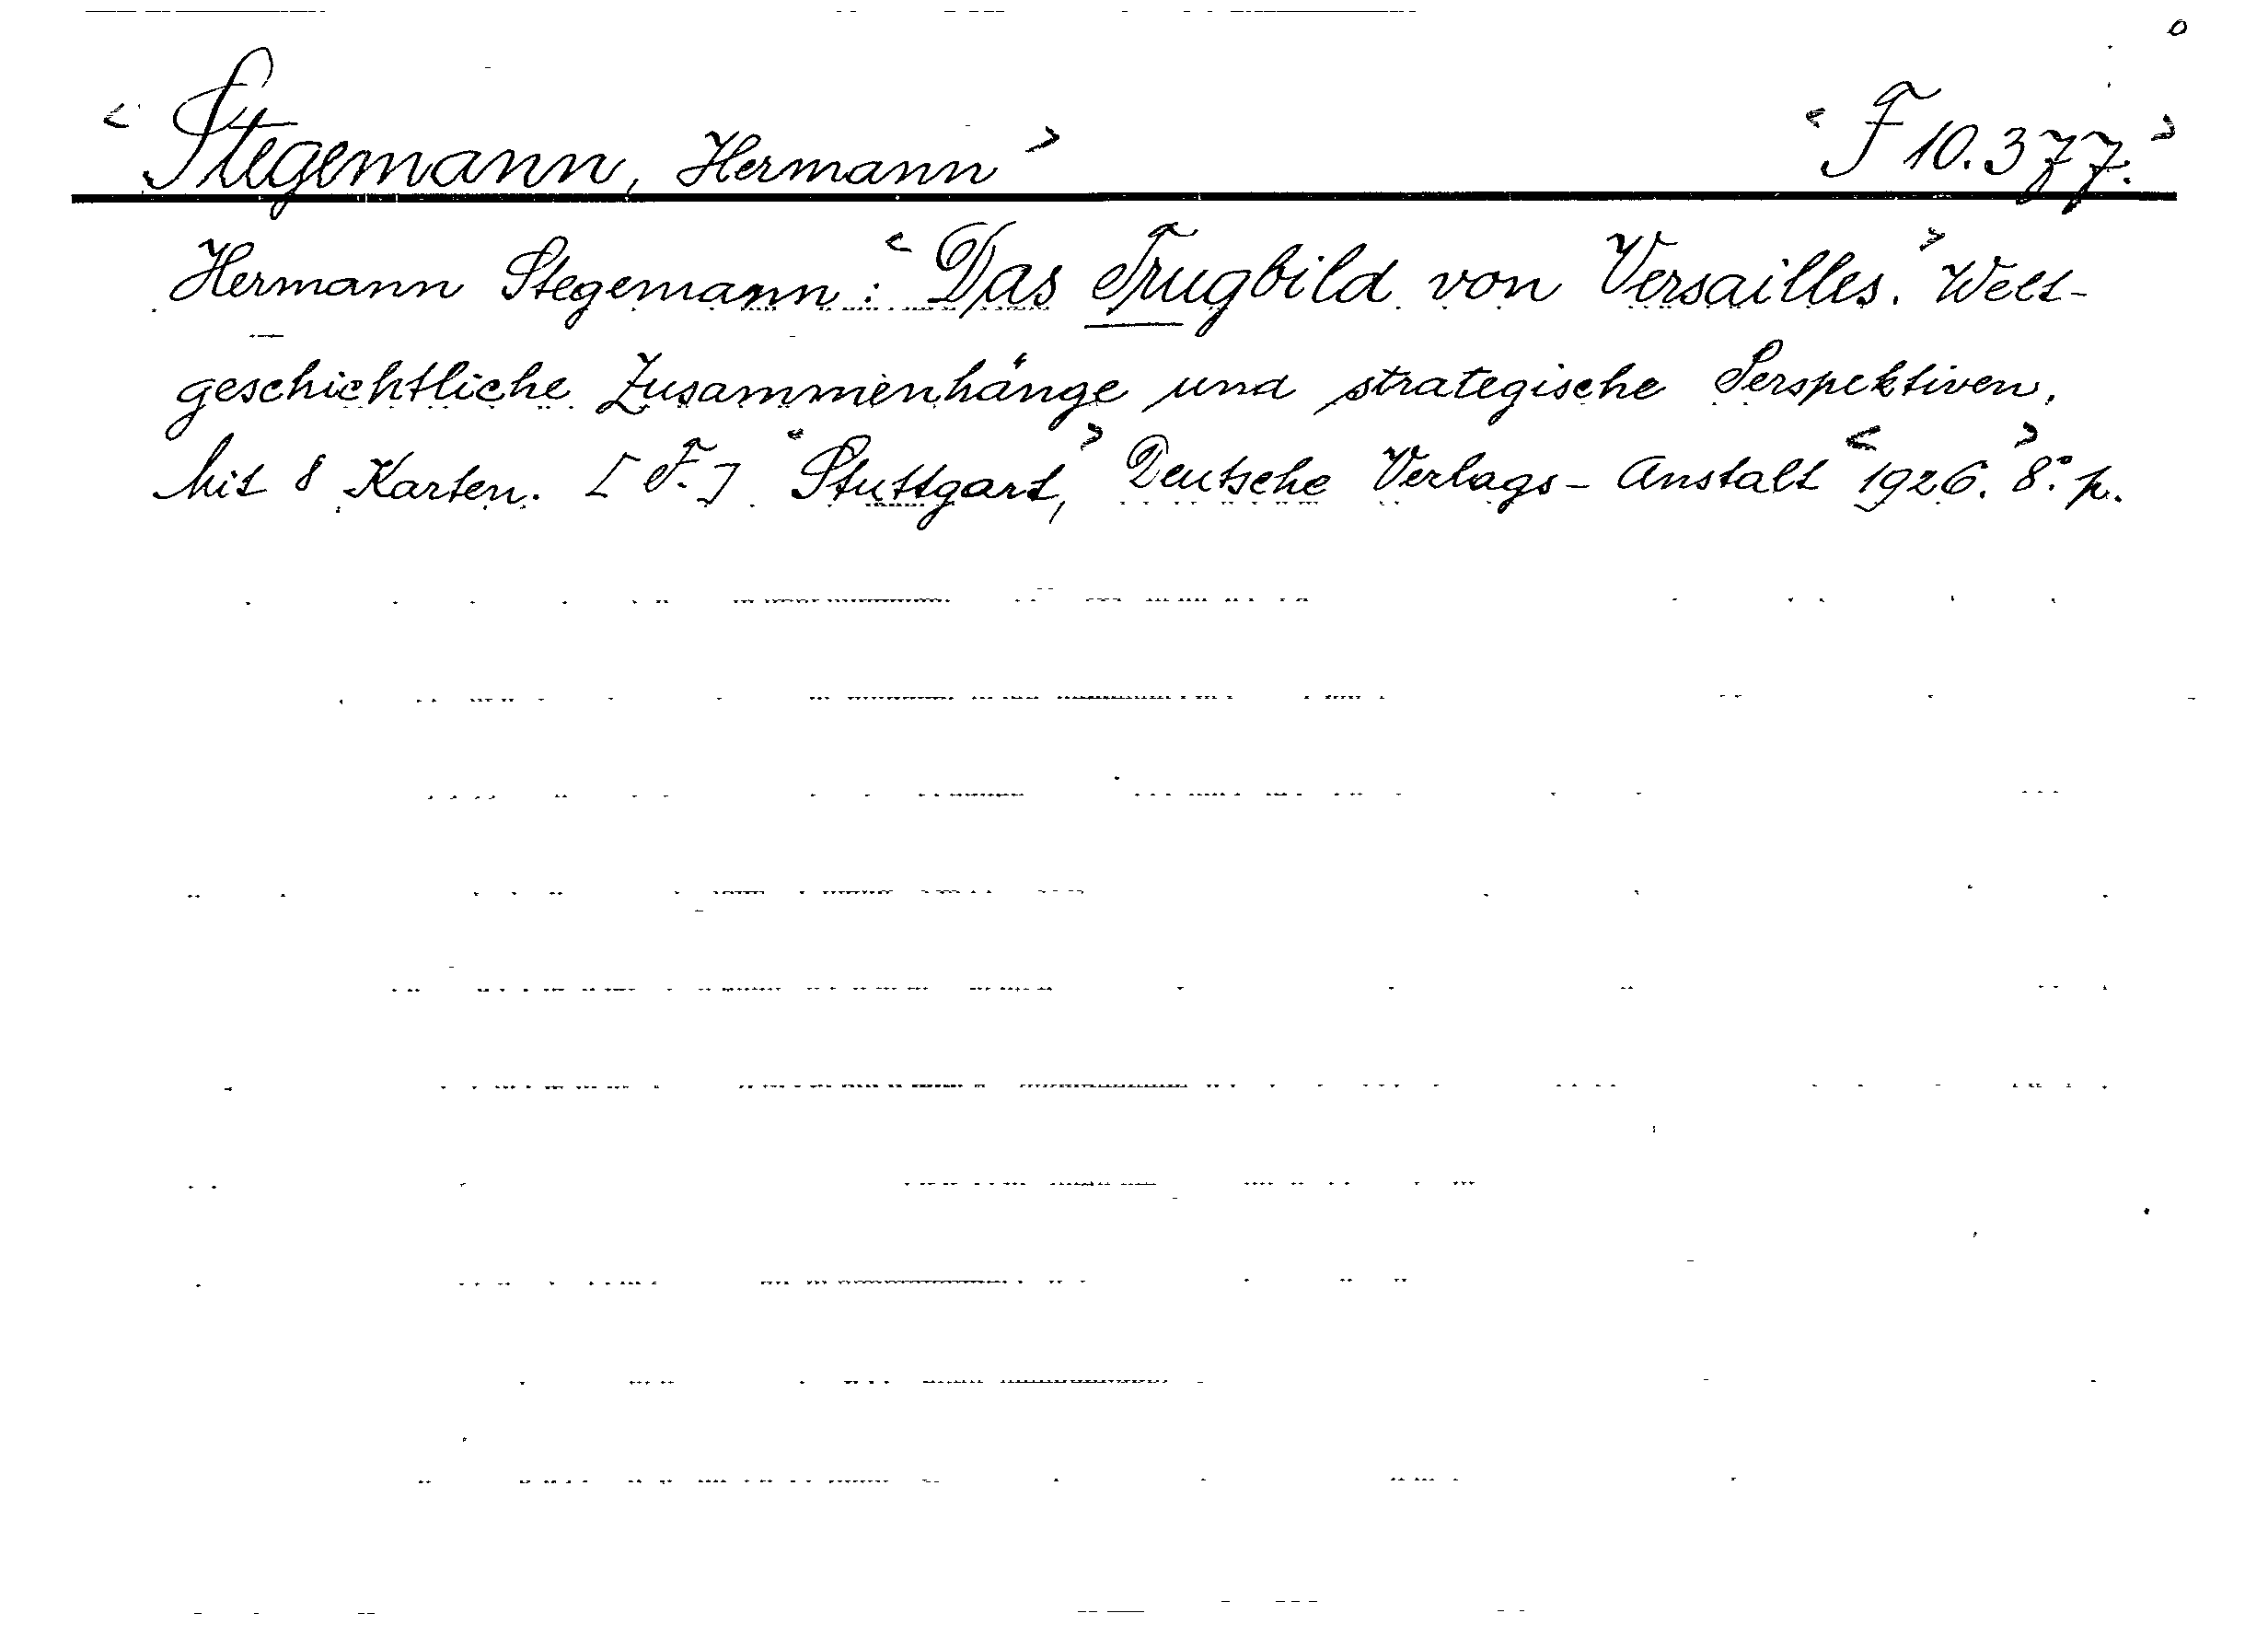 < Stegemann, Hermann > < F 10.377. >
Hermann Stegemann: < Das Trugbild von Versailles. > Welt-
geschichtliche Zusammenhänge und strategische Perspektiven.
Mit 8 Karten. [F.] < Stuttgart, > Deutsche Verlags-Anstalt < 1926. > 8° p.